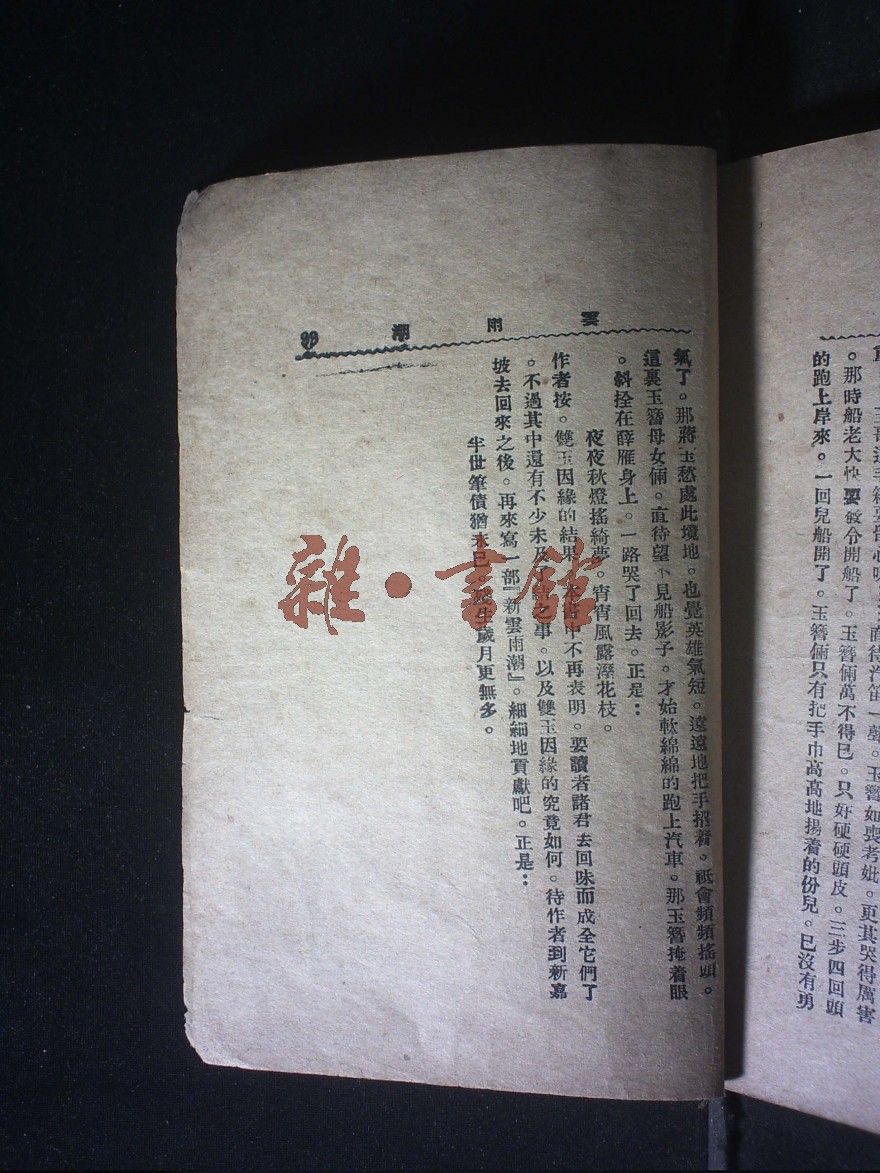 的跑上岸來。一回兒船開了。玉簪倆只有把手巾高高地揚着的份兒。已沒有勇
雲雨潮 99
氣了。那蔣玉愁處此境地。也覺英雄氣短。遠遠地把手招着。祇會頻頻搖頭。
這裏玉簪母女倆。直待望不見船影子。才始軟綿綿的跑上汽車。那玉簪掩着眼
。斜拴在薛雁身上。一路哭了回去。正是：
夜夜秋燈搖綺夢。宵宵風露溼花枝。
作者按。雙玉因緣的結果。本書中不再表明。要讀者諸君去回味而成全它們了
。不過其中還有不少未及了結之事。以及雙玉因緣的究竟如何。待作者到新嘉
坡去回來之後。再來寫一部『新雲雨潮』。細細地貢獻吧。正是：
半世筆債猶未已。 生歲月更無多。
雜·書館